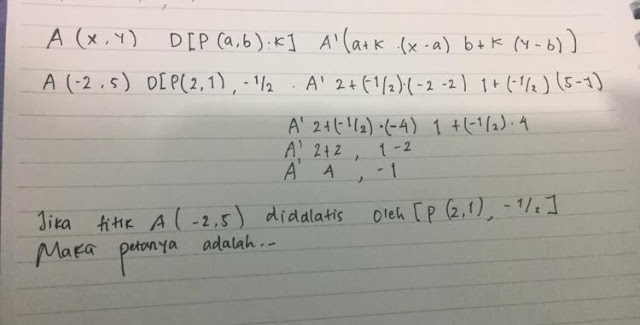 A (x, y) D[P (a,b).K] A'(a+k .(x-a) b+k (y-b))
A (-2,5) D[P(2,1), -1/2 . A' 2+(-1/2).(-2-2) 1+(-1/2)(5-1)
A' 2+(-1/2).(-4) 1+(-1/2).4
A' 2+2 , 1-2
A' 4 , -1
Jika titik A(-2,5) didalatis oleh [P (2,1), -1/2]
Maka petanya adalah...